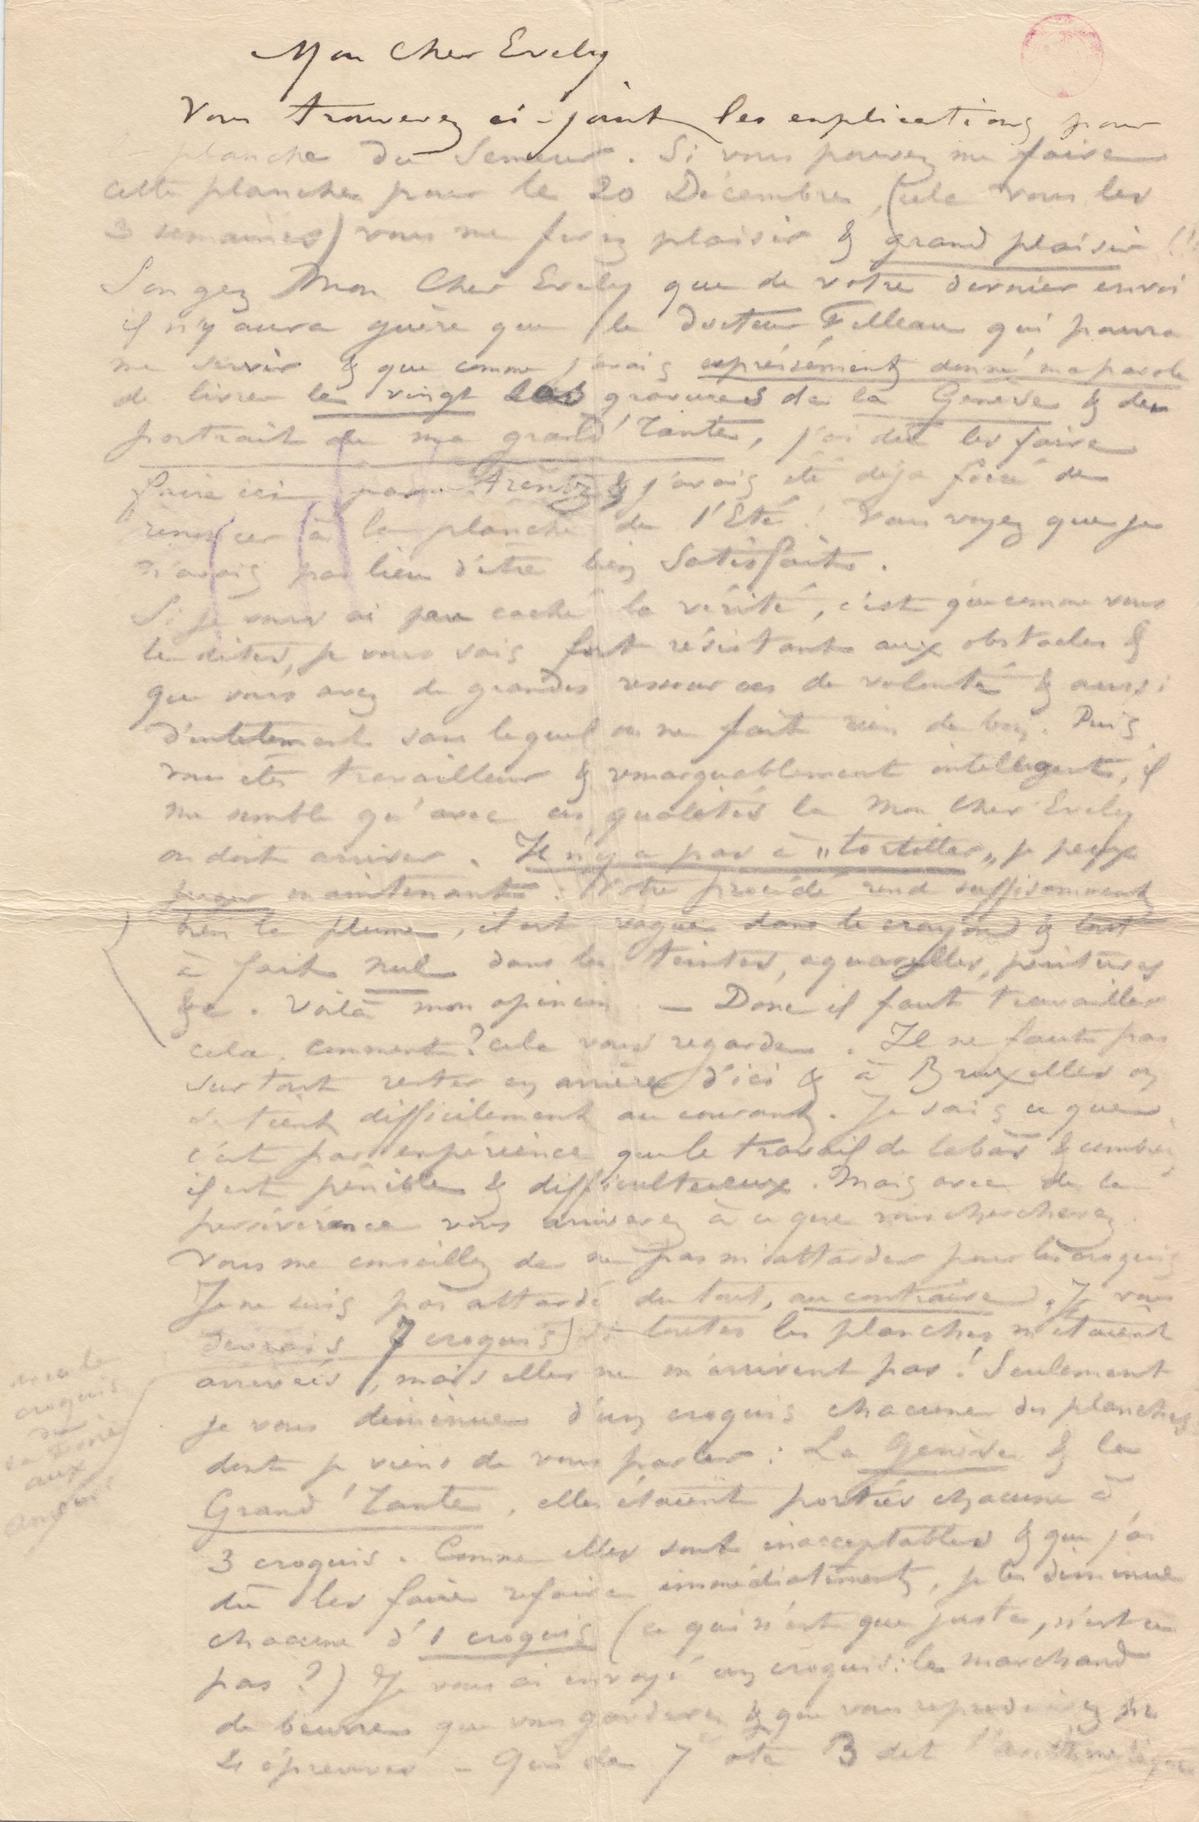 Mon Cher Evely
Vous trouverez ci-joint les explications pour
planche du Semeur. Si vous pouvez me faire
cette planche pour le 20 Décembre, (cela vous les
3 semaines) vous me ferez plaisir & grand plaisir !!
Songez Mon Cher Evely que de votre dernier envoi
il n'y aura guère que le docteur Filleau qui pourra
me servir & que comme j'avais expréssément donné ma parole
de livrer le vingt les gravures de la Genèse & du
portrait de ma grand'Tante, j'ai dû les faire
faire ici par Arents & j'avais été déja forcé de
renoncer à la planche de l'Eté! Vous voyez que je
n'avais pas lieu d'être bien satisfait.
Si je vous ai peu caché la vérité, c'est que comme vous
le dites, je vous sais fort résistant aux obstacles &
que vous avez de grandes ressources de volonté & aussi
d'entêtement sans lequel on ne fait rien de bon. Puis
vous êtes travailleur & remarquablement intelligent, il
me semble qu'avec ces qualités là Mon Cher Evely
on doit arriver. Il n'y a pas à "tortiller" je peux
juger maintenant: Votre procédé rend suffisamment
bien la plume, il est vague dans le crayon & tout
à fait nul dans les teintes, aquarelles, peintures
&c. Voilà mon opinion — Donc il faut travailler
cela. Comment? cela vous regarde. Il ne faut pas
surtout rester en arrière d'ici & à Bruxelles on
se tient difficilement au courant. Je sais ce que
c'est par expérience que le travail de là bas & combien
il est pénible & difficultueux. Mais avec de la
persévérance vous arriverez à ce que vous cherchez.
Vous me conseillez de ne pas m'attarder pour les croquis
Je ne suis pas attardé du tout, au contraire. Je vous
devrais 7 croquis) si toutes les planches m'étaient
arrivées, mais elles ne m'arrivent pas! Seulement
je vous diminue d'un croquis chacune des planches
dont je viens de vous parler: La Genèse & la
Grand'Tante, elles étaient portées chacune à
3 croquis. Comme elles sont inacceptables & que j'ai
dû les faire refaire immédiatement, je les diminue
chacune d'1 croquis (ce qui n'est que juste, n'est ce
pas?) Je vous ai envoyé un croquis: le marchand
de beurre que vous garderez & que vous reproduirez
4 épreuves – Qui de 7 ôte 3 dit l'arithmétique
croquis
aux